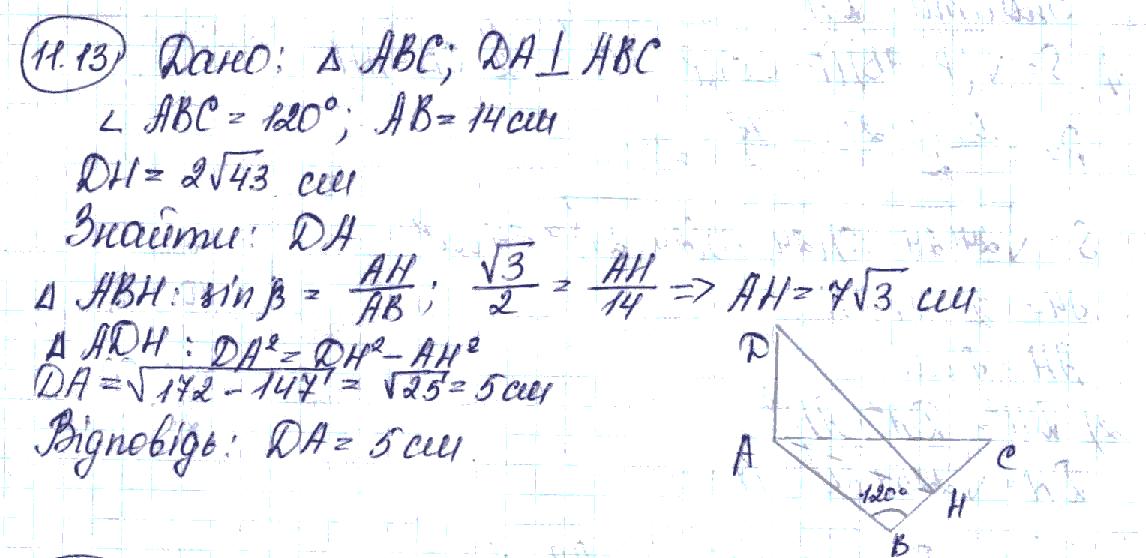 11.13 Дано: △ ABC; DA⊥ ABC
∠ ABC = 120°; AB = 14 см
DH = 2√43 см
Знайти: DA
△ ABH: sin β = AH/AB; √3/2 = AH/14 => AH = 7√3 см
△ ADH: DA² = DH² - AH²
DA = √172 - 147 = √25 = 5 см
Відповідь: DA = 5 см.
D
A
C
120°
H
B